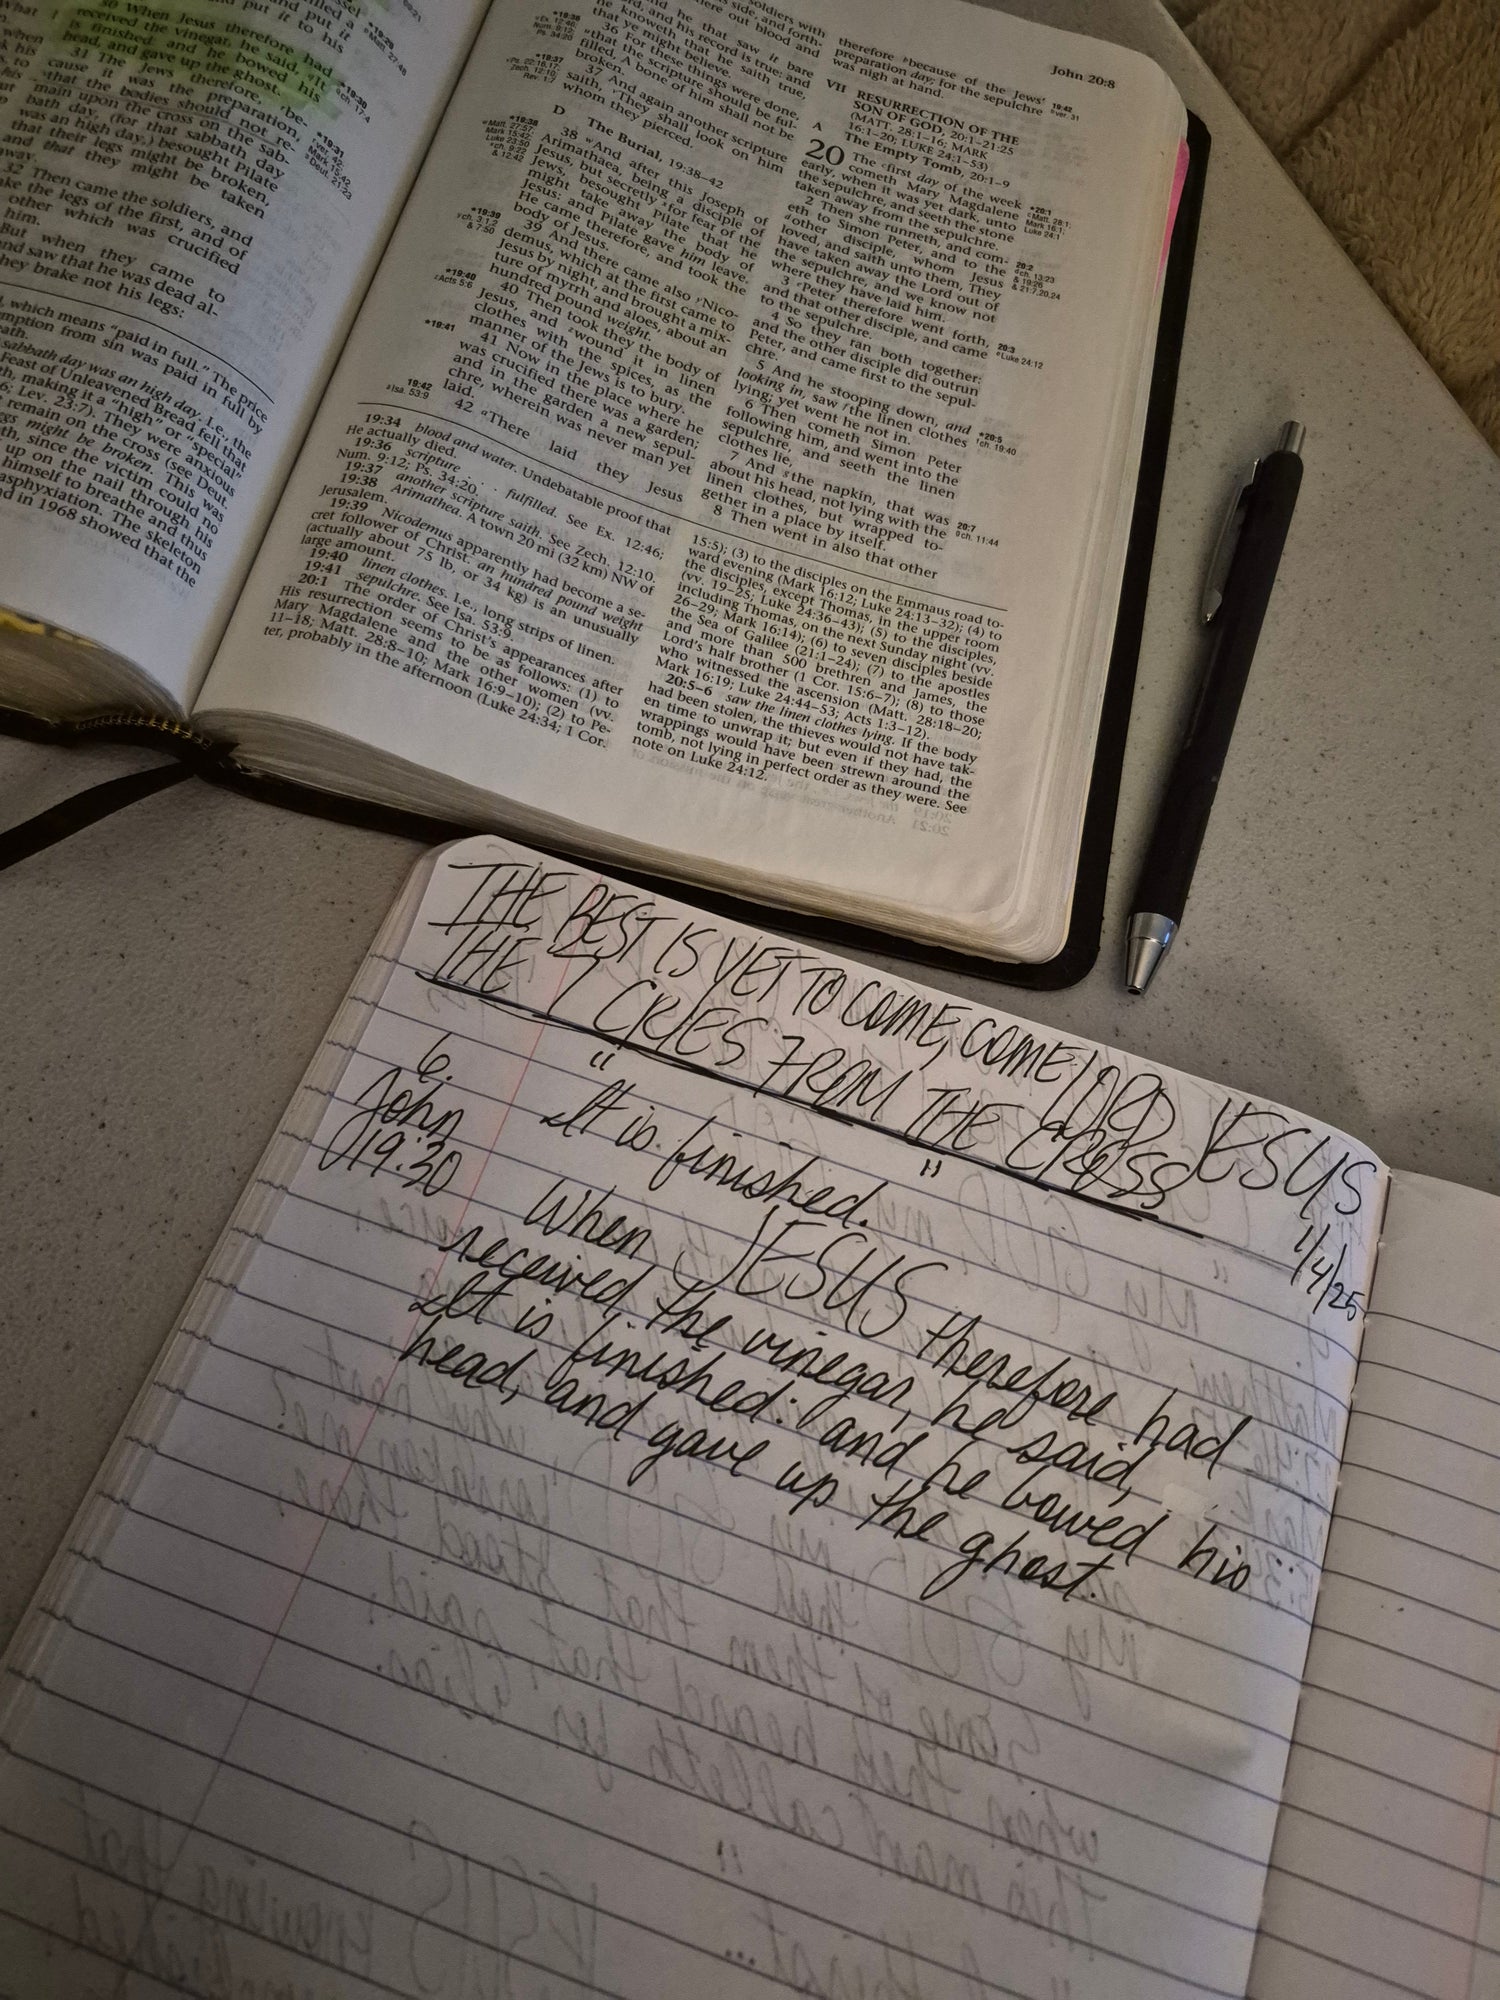 received the vinegar, he said, "It
is finished: and he bowed his
head, and gave up the ghost.
31 The Jews therefore, be-
cause it was the preparation,
that the bodies should not re-
main upon the cross on the sab-
bath day, (for that sabbath day
was an high day,) besought Pilate
that their legs might be broken,
and that they might be taken
away.
32 Then came the soldiers, and
brake the legs of the first, and of
other which was crucified
him.
But when they came to
and saw that he was dead al-
they brake not his legs:
which means "paid in full." The price
emption from sin was paid in full by
eath.
sabbath day was an high day. I.e., the
Feast of Unleavened Bread fell that
making it a "high" or "special"
Lev. 23:7). They were anxious
remain on the cross (see Deut.
might be broken. This was
th, since the victim could no
up on the nail through his
himself to breathe and thus
asphyxiation. The skeleton
nd in 1968 showed that the
John 20:8
and he that saw it bare
and his record is true: and
he knoweth that he saith true,
that ye might believe.
36 For these things were done,
that the scripture should be ful-
filled, A bone of him shall not be
broken.
37 And again another scripture
saith, They shall look on him
whom they pierced.
D The Burial, 19:38–42
38 And after this Joseph of
Arimathaea, being a disciple of
Jesus, but secretly for fear of the
Jews, besought Pilate that he
might take away the body of
Jesus: and Pilate gave him leave.
He came therefore, and took the
body of Jesus.
39 And there came also Nico-
demus, which at the first came to
Jesus by night, and brought a mix-
ture of myrrh and aloes, about an
hundred pound weight.
40 Then took they the body of
Jesus, and wound it in linen
clothes with the spices, as the
manner of the Jews is to bury.
41 Now in the place where he
was crucified there was a garden;
and in the garden a new sepul-
chre, wherein was never man yet
laid.
42 There laid they Jesus
therefore because of the Jews'
preparation day; for the sepulchre
was nigh at hand.
VII RESURRECTION OF THE
SON OF GOD, 20:1–21:25
(MATT. 28:1–16; MARK
16:1–20; LUKE 24:1–53)
A The Empty Tomb, 20:1–9
20 The first day of the week
cometh Mary Magdalene
early, when it was yet dark, unto
the sepulchre, and seeth the stone
taken away from the sepulchre.
2 Then she runneth, and com-
eth to Simon Peter, and to the
other disciple, whom Jesus
loved, and saith unto them, They
have taken away the Lord out of
the sepulchre, and we know not
where they have laid him.
3 Peter therefore went forth,
and that other disciple, and came
to the sepulchre.
4 So they ran both together:
and the other disciple did outrun
Peter, and came first to the sepul-
chre.
5 And he stooping down, and
looking in, saw the linen clothes
lying; yet went he not in.
6 Then cometh Simon Peter
following him, and went into the
sepulchre, and seeth the linen
clothes lie,
7 And the napkin, that was
about his head, not lying with the
linen clothes, but wrapped to-
gether in a place by itself.
8 Then went in also that other
19:34 blood and water. Undebatable proof that
He actually died.
19:36 scripture . . . fulfilled. See Ex. 12:46;
Num. 9:12; Ps. 34:20.
19:37 another scripture saith. See Zech. 12:10.
19:38 Arimathea. A town 20 mi (32 km) NW of
Jerusalem.
19:39 Nicodemus apparently had become a se-
cret follower of Christ. an hundred pound weight
(actually about 75 lb. or 34 kg) is an unusually
large amount.
19:40 linen clothes. I.e., long strips of linen.
19:41 sepulchre. See Isa. 53:9.
20:1 The order of Christ's appearances after
His resurrection seems to be as follows: (1) to
Mary Magdalene and the other women (vv.
11–18; Matt. 28:8–10; Mark 16:9–10); (2) to Pe-
ter, probably in the afternoon (Luke 24:34; 1 Cor.
15:5); (3) to the disciples on the Emmaus road to-
ward evening (Mark 16:12; Luke 24:13–32); (4) to
the disciples, except Thomas, in the upper room
(vv. 19–25; Luke 24:36–43); (5) to the disciples,
including Thomas, on the next Sunday night (vv.
26–29; Mark 16:14); (6) to seven disciples beside
the Sea of Galilee (21:1–24); (7) to the apostles
and more than 500 brethren and James, the
Lord's half brother (1 Cor. 15:6–7); (8) to those
who witnessed the ascension (Matt. 28:18–20;
Mark 16:19; Luke 24:44–53; Acts 1:3–12).
20:5–6 saw the linen clothes lying. If the body
had been stolen, the thieves would not have tak-
en time to unwrap it; but even if they had, the
wrappings would have been strewn around the
tomb, not lying in perfect order as they were. See
note on Luke 24:12.
THE BEST IS YET TO COME, COME LORD JESUS
THE 7 CRIES FROM THE CROSS
1/4/25
6. "It is finished."
John
19:30 When JESUS therefore had
received the vinegar, he said,
It is finished: and he bowed his
head, and gave up the ghost.